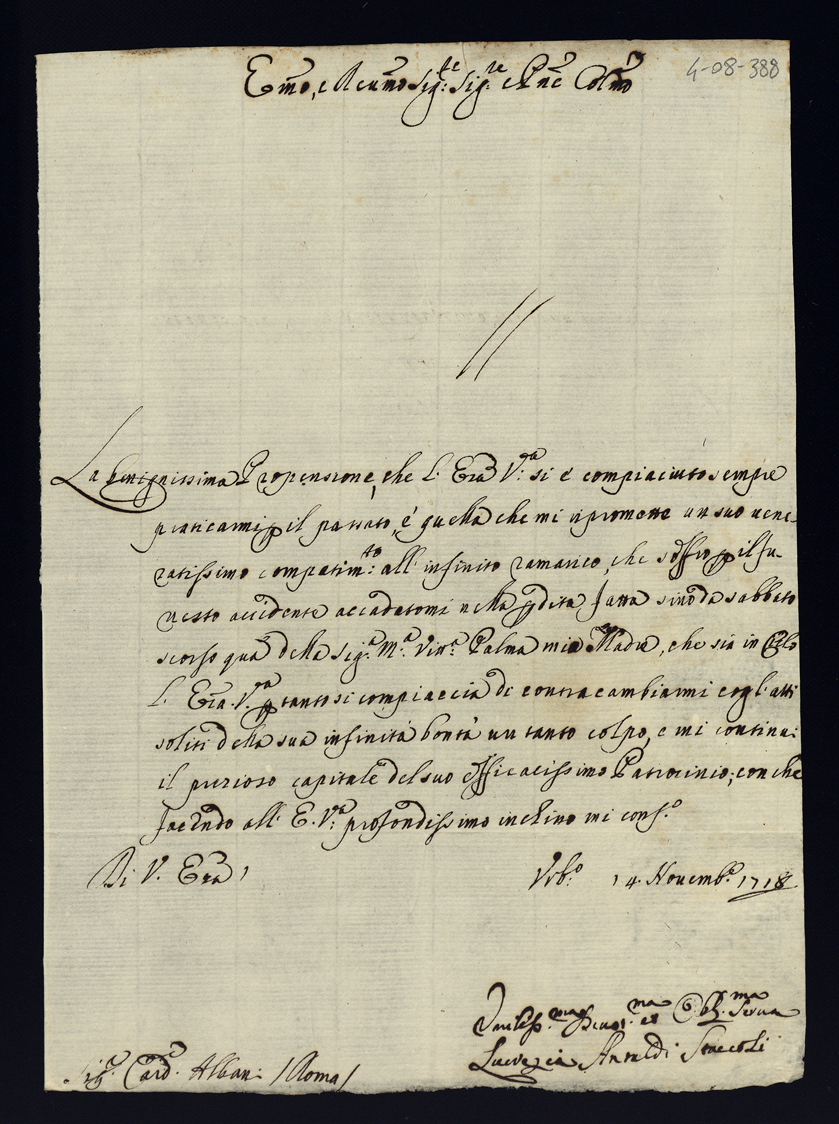 4-08-388
Emo, e Reumo Sig:re Sig:re e Pne Colmo
La benignissima Propensione, che l'Eza V:ra si è compiaciuto sempre
praticarmi p il passato, è quella che mi ripromette un suo vene-
ratissimo compatim:to all'infinito ramarico, che soffro p il fu-
nesto accidente accadutomi nella pdita fatta sino da sabbato
scorso quà della Sig:ra M:a Vitt:a Palma mia Madre, che sia in Cielo
L'Eza V:ra p tanto si compiaccia di contracambiarmi cogl'atti
soliti della sua infinità bontà un tanto colpo, e mi continui
il prezioso capitale del suo efficacissimo Patrocinio; con che
facendo all'E. V:ra profondissimo inchino mi conf:o
Di V. Eza
Urb:o 14. Novemb:e 1718
Umiliss:ma Devot:ma et Obl:ma Serva
Lucrezia Antaldi Staccoli
Sig:r Card:l Albani /Roma/